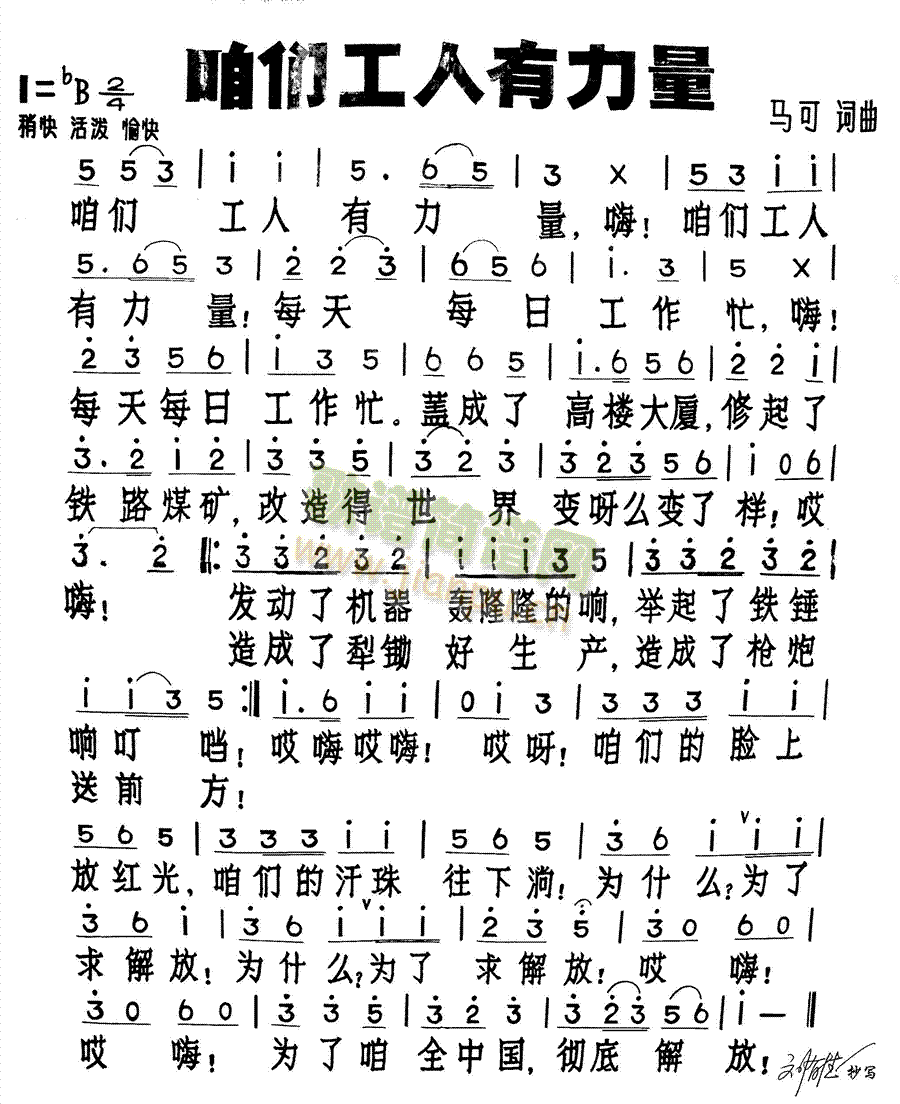 咱们工人有力量
1=♭B 2/4
稍快 活泼 愉快
马可 词曲
5 5 3 | i i | 5. 6 5 | 3 X | 5 3 i i |
咱们 工人 有 力 量,嗨! 咱们工人
5. 6 5 3 | 2 2 3 | 6 5 6 | i. 3 | 5 X |
有 力 量! 每天 每 日 工 作 忙,嗨!
2 3 5 6 | i 3 5 | 6 6 5 | i. 6 5 6 | 2 2 i |
每天每日 工作忙。盖成了 高楼大厦,修起了
3. 2 i 2 | 3 3 5 | 3 2 3 | 3 2 3 5 6 | i 0 6 |
铁路煤矿,改造得 世 界 变呀么变了 样! 哎
3. 2 |: 3 3 2 3 2 | i i i 3 5 | 3 3 2 3 2 |
嗨! 发动了机器 轰隆隆的响,举起了铁锤
造成了犁锄 好 生 产,造成了枪炮
i i 3 5 :| i. 6 i i | 0 i 3 | 3 3 3 i i |
响叮 当! 哎嗨哎嗨! 哎呀! 咱们的脸上
送前 方!
5 6 5 | 3 3 3 i i | 5 6 5 | 3 6 i ∨ i i |
放红光,咱们的汗珠 往下淌! 为什 么?为了
3 6 i | 3 6 i ∨ i i | 2 3 5 | 3 0 6 0 |
求解放! 为什 么?为了 求解放! 哎 嗨!
3 0 6 0 | 3 3 5 | 3 2 3 | 3 2 3 5 6 | i — ‖
哎 嗨! 为了咱 全中国,彻底 解 放!
抄写
歌谱简谱网